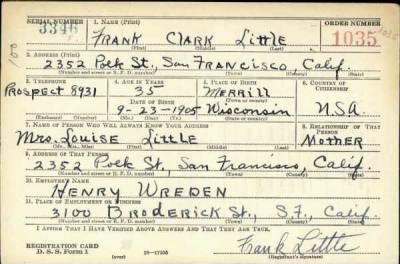 SERIAL NUMBER 1. NAME (Print) ORDER NUMBER
3346 FRANK CLARK LITTLE 1035
(First) (Middle) (Last)
2. ADDRESS (Print)
2352 POLK ST., SAN FRANCISCO, CALIF.
(Number and street or R. F. D. number) (Town) (County) (State)
3. TELEPHONE 4. AGE IN YEARS 5. PLACE OF BIRTH 6. COUNTRY OF CITIZENSHIP
PROSPECT 8931 35 MERRILL
DATE OF BIRTH (Town or county)
9-23-1905 WISCONSIN USA
(Exchange) (Number) (Mo.) (Day) (Yr.) (State or country)
7. NAME OF PERSON WHO WILL ALWAYS KNOW YOUR ADDRESS 8. RELATIONSHIP OF THAT PERSON
MRS. LOUISE LITTLE MOTHER
(Mr., Mrs., Miss) (First) (Middle) (Last)
9. ADDRESS OF THAT PERSON
2352 POLK ST., SAN FRANCISCO, CALIF.
(Number and street or R. F. D. number) (Town) (County) (State)
10. EMPLOYER'S NAME
HENRY WREDEN
11. PLACE OF EMPLOYMENT OR BUSINESS
3100 BRODERICK ST., S.F., CALIF.
(Number and street or R. F. D. number) (Town) (County) (State)
I AFFIRM THAT I HAVE VERIFIED ABOVE ANSWERS AND THAT THEY ARE TRUE.
REGISTRATION CARD Frank Little
D. S. S. Form 1 16-17105 (Registrant's signature)